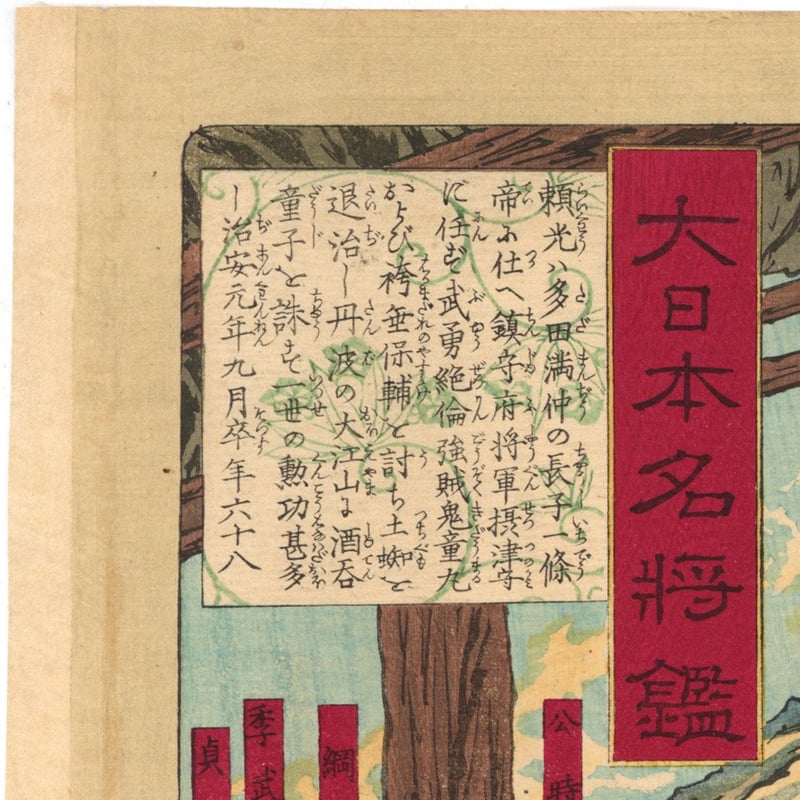 大日本名将鑑
頼光ハ多田満仲の長子一條
帝に仕へ鎮守府将軍摂津守
に任ず武勇絶倫強賊鬼童丸
および袴垂保輔を討ち土蜘を
退治し丹波の大江山に酒呑
童子を誅す一世の勲功甚多
し治安元年九月卒年六十八
公時
綱
季武
貞